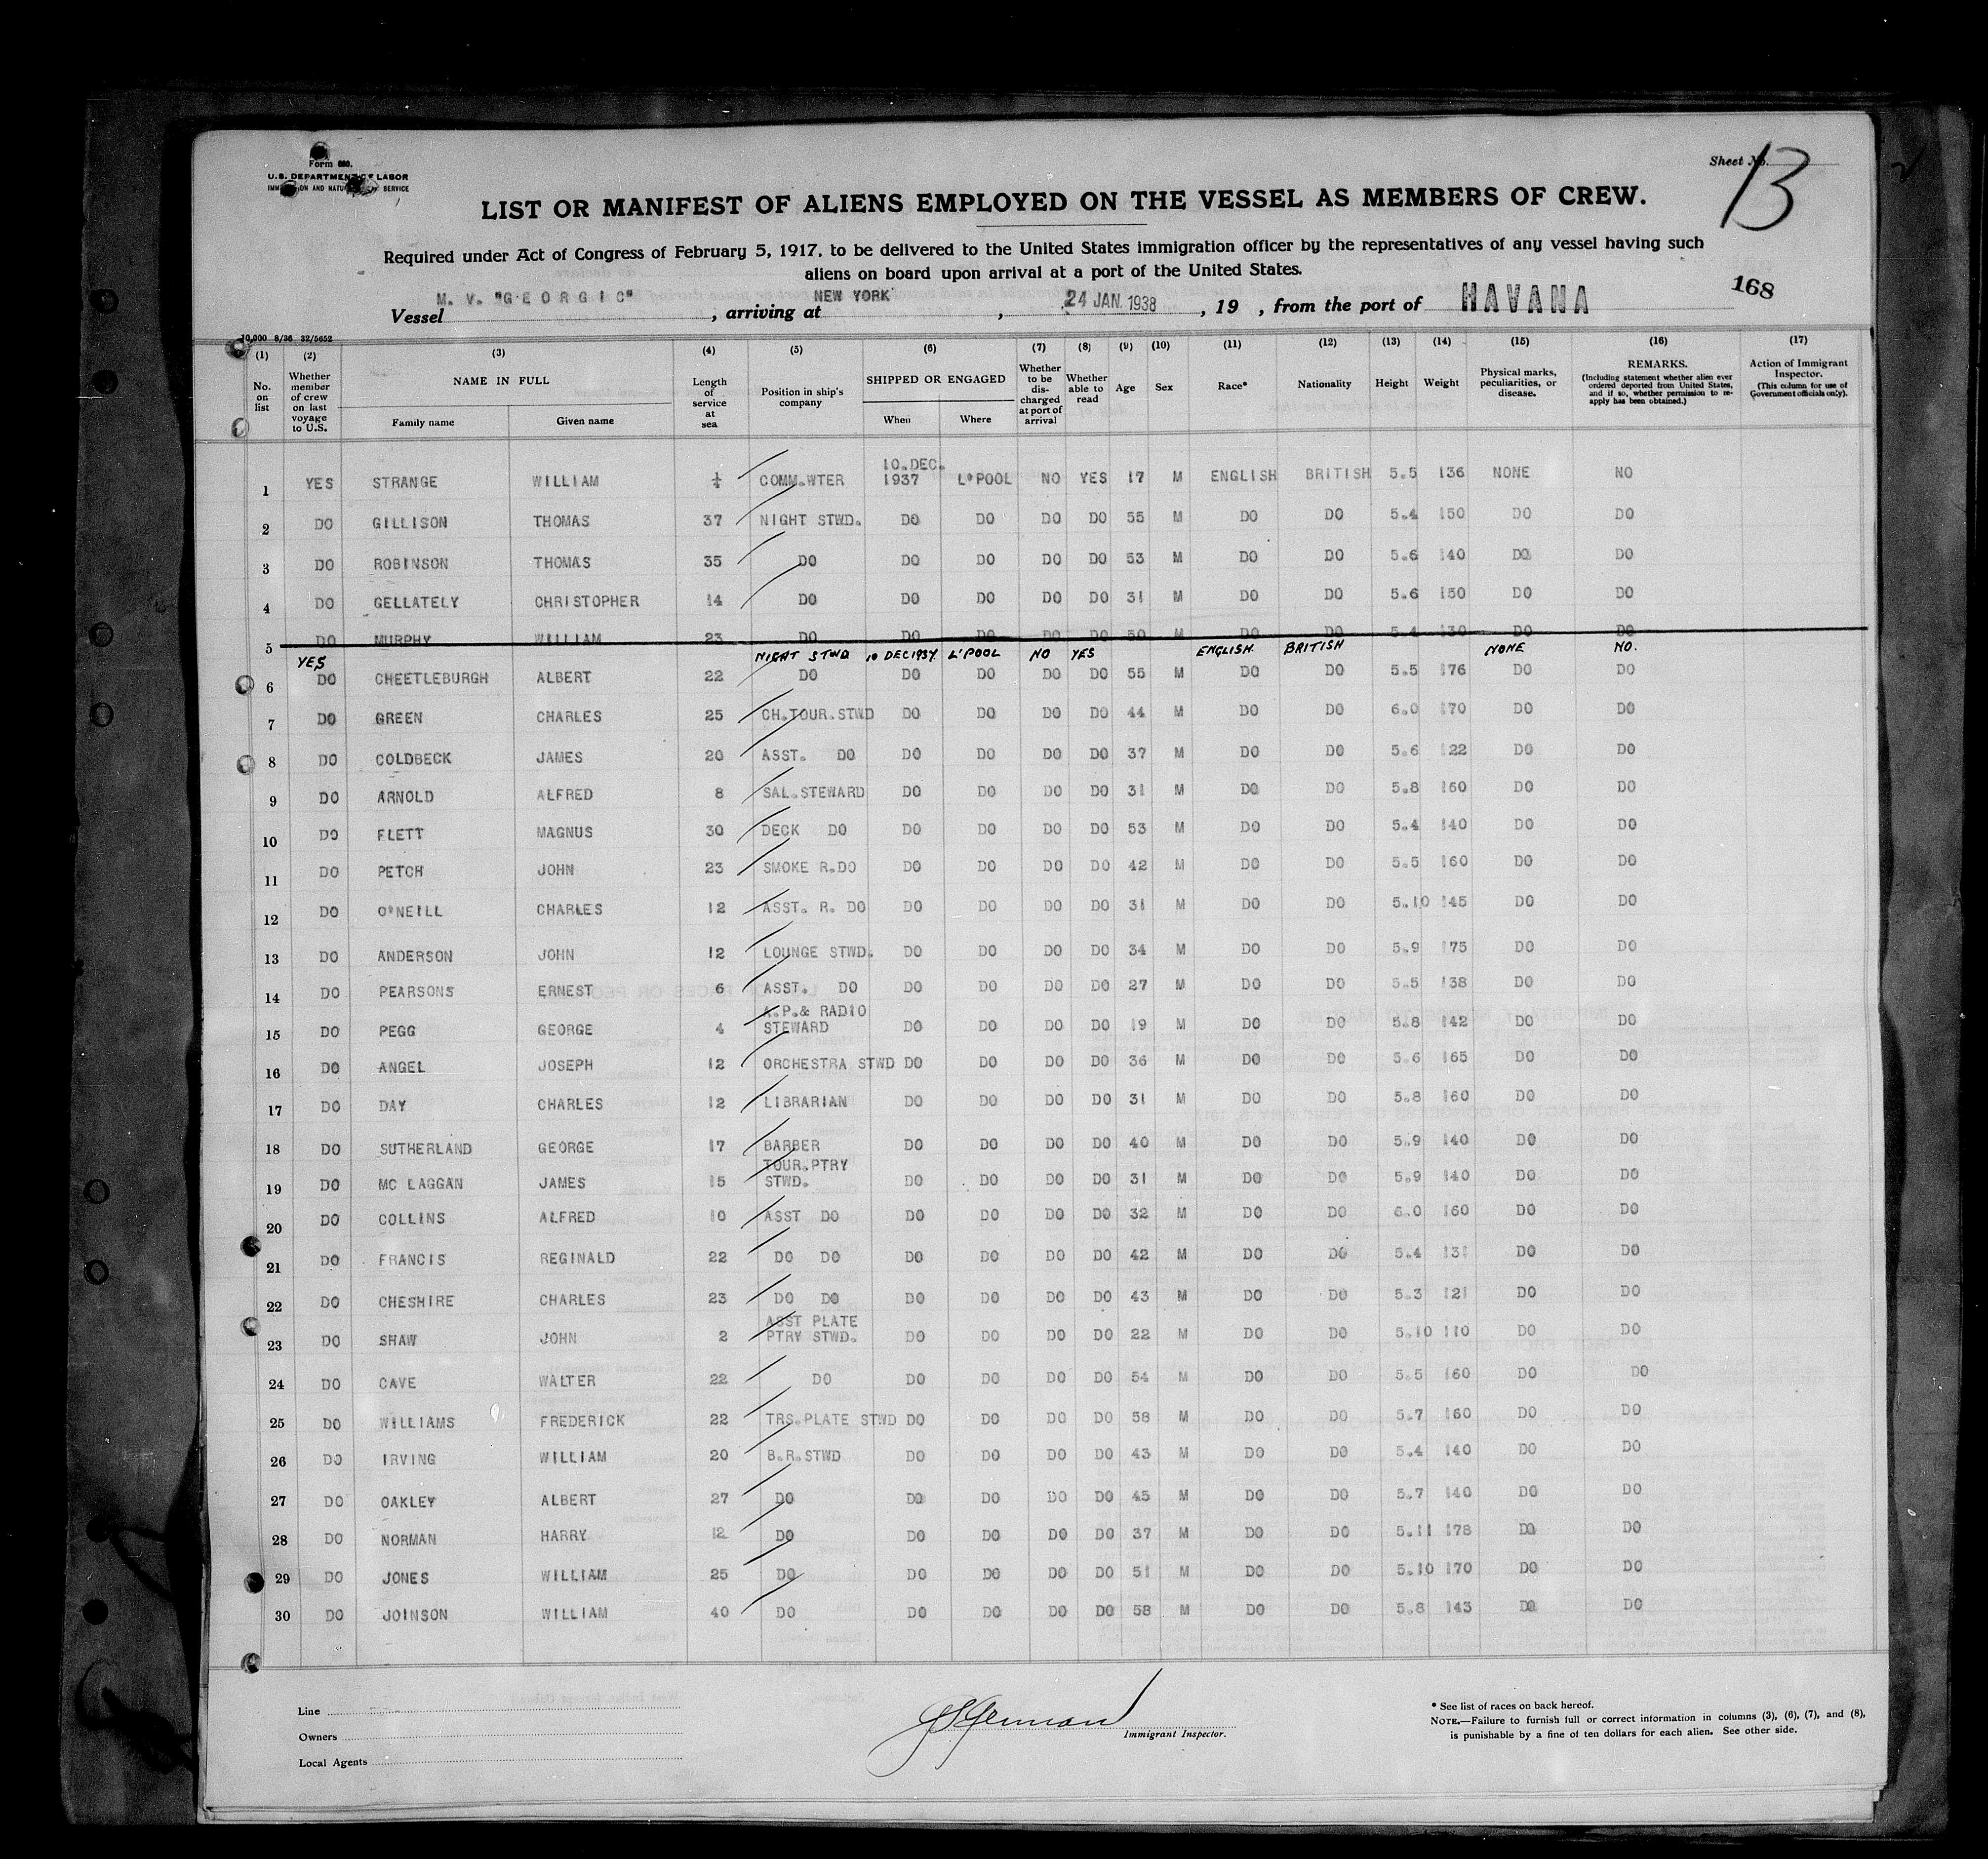 Form 680.
U.S. DEPARTMENT OF LABOR
IMMIGRATION AND NATURALIZATION SERVICE
Sheet No. 13
LIST OR MANIFEST OF ALIENS EMPLOYED ON THE VESSEL AS MEMBERS OF CREW.
Required under Act of Congress of February 5, 1917, to be delivered to the United States immigration officer by the representatives of any vessel having such
aliens on board upon arrival at a port of the United States.
168
Vessel M. V. "GEORGIC", arriving at NEW YORK, 24 JAN. 1938, 19 , from the port of HAVANA
10,000 8/36 32/5652
(1) (2) (3) (4) (5) (6) (7) (8) (9) (10) (11) (12) (13) (14) (15) (16) (17)
No. on list Whether member of crew on last voyage to U.S. NAME IN FULL Family name Given name Length of service at sea Position in ship's company SHIPPED OR ENGAGED When Where Whether to be discharged at port of arrival Whether able to read Age Sex Race* Nationality Height Weight Physical marks, peculiarities, or disease. REMARKS. (Including statement whether alien ever ordered deported from United States, and if so, whether permission to re-apply has been obtained.) Action of Immigrant Inspector. (This column for use of Government officials only).
1 YES STRANGE WILLIAM ¼ COMM.WTER 10.DEC. 1937 L'POOL NO YES 17 M ENGLISH BRITISH 5.5 136 NONE NO
2 DO GILLISON THOMAS 37 NIGHT STWD. DO DO DO DO 55 M DO DO 5.4 150 DO DO
3 DO ROBINSON THOMAS 35 DO DO DO DO DO 53 M DO DO 5.6 140 DO DO
4 DO GELLATELY CHRISTOPHER 14 DO DO DO DO DO 31 M DO DO 5.6 150 DO DO
5 DO MURPHY WILLIAM 23 DO DO DO DO DO 50 M DO DO 5.4 130 DO DO
YES NIGHT STWD 10 DEC 1937 L'POOL NO YES ENGLISH BRITISH NONE NO.
6 DO CHEETLEBURGH ALBERT 22 DO DO DO DO DO 55 M DO DO 5.5 176 DO DO
7 DO GREEN CHARLES 25 CH.TOUR.STWD DO DO DO DO 44 M DO DO 6.0 170 DO DO
8 DO COLDBECK JAMES 20 ASST. DO DO DO DO DO 37 M DO DO 5.6 122 DO DO
9 DO ARNOLD ALFRED 8 SAL.STEWARD DO DO DO DO 31 M DO DO 5.8 160 DO DO
10 DO FLETT MAGNUS 30 DECK DO DO DO DO DO 53 M DO DO 5.4 140 DO DO
11 DO PETCH JOHN 23 SMOKE R.DO DO DO DO DO 42 M DO DO 5.5 160 DO DO
12 DO O'NEILL CHARLES 12 ASST. R. DO DO DO DO DO 31 M DO DO 5.10 145 DO DO
13 DO ANDERSON JOHN 12 LOUNGE STWD. DO DO DO DO 34 M DO DO 5.9 175 DO DO
14 DO PEARSONS ERNEST 6 ASST. DO DO DO DO DO 27 M DO DO 5.5 138 DO DO
15 DO PEGG GEORGE 4 A.P.& RADIO STEWARD DO DO DO DO 19 M DO DO 5.8 142 DO DO
16 DO ANGEL JOSEPH 12 ORCHESTRA STWD DO DO DO DO 36 M DO DO 5.6 165 DO DO
17 DO DAY CHARLES 12 LIBRARIAN DO DO DO DO 31 M DO DO 5.8 160 DO DO
18 DO SUTHERLAND GEORGE 17 BARBER DO DO DO DO 40 M DO DO 5.9 140 DO DO
19 DO MC LAGGAN JAMES 15 TOUR.PTRY STWD. DO DO DO DO 31 M DO DO 5.9 140 DO DO
20 DO COLLINS ALFRED 10 ASST DO DO DO DO DO 32 M DO DO 6.0 160 DO DO
21 DO FRANCIS REGINALD 22 DO DO DO DO DO DO 42 M DO DO 5.4 131 DO DO
22 DO CHESHIRE CHARLES 23 DO DO DO DO DO DO 43 M DO DO 5.3 121 DO DO
23 DO SHAW JOHN 2 ASST PLATE PTRY STWD. DO DO DO DO 22 M DO DO 5.10 110 DO DO
24 DO CAVE WALTER 22 DO DO DO DO DO 54 M DO DO 5.5 160 DO DO
25 DO WILLIAMS FREDERICK 22 TRS.PLATE STWD DO DO DO DO 58 M DO DO 5.7 160 DO DO
26 DO IRVING WILLIAM 20 B.R.STWD DO DO DO DO 43 M DO DO 5.4 140 DO DO
27 DO OAKLEY ALBERT 27 DO DO DO DO DO 45 M DO DO 5.7 140 DO DO
28 DO NORMAN HARRY 12 DO DO DO DO DO 37 M DO DO 5.11 178 DO DO
29 DO JONES WILLIAM 25 DO DO DO DO DO 51 M DO DO 5.10 170 DO DO
30 DO JOINSON WILLIAM 40 DO DO DO DO DO 58 M DO DO 5.8 143 DO DO
Line
Owners
Local Agents
Immigrant Inspector.
* See list of races on back hereof.
NOTE.—Failure to furnish full or correct information in columns (3), (6), (7), and (8),
is punishable by a fine of ten dollars for each alien. See other side.